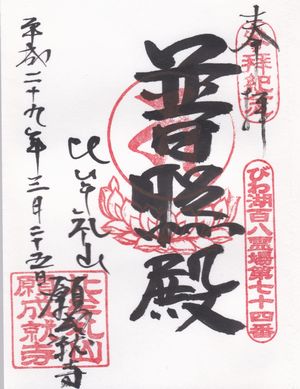 奉拝
びわ湖百八霊場第七十四番
普照殿
比牟礼山
願成就寺
平成二十九年三月二十五日
比牟礼山
願成就寺